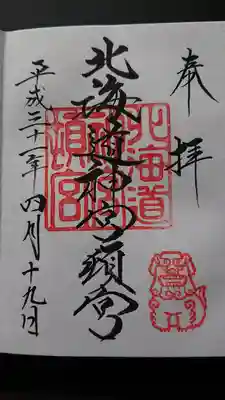 奉拝
北海道神宮頓宮
北海道
頓宮
平成二十一年四月十九日